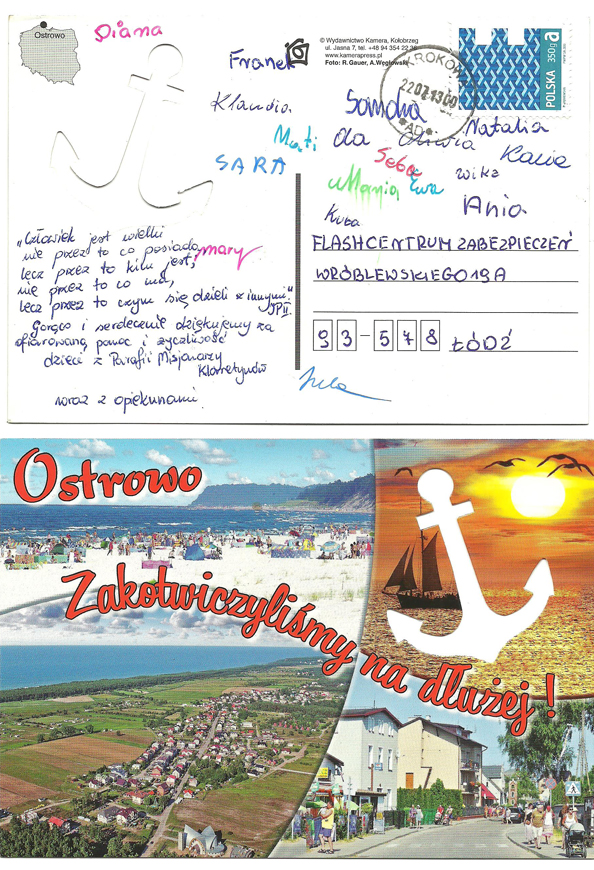 Ostrowo
Diana
© Wydawnictwo Kamera, Kołobrzeg
ul. Jasna 7, tel. +48 94 354 22 36
www.kamerapress.pl
Foto: R. Gauer, A. Węglowski
POLSKA 350g A
KROKOWA
22.07.13 00
Franek
Klaudia
Sandra
Mati
da Oliwia
Natalia
Kasia
SARA
Seba
wika
Mania Ewa
Ania
Kuba
„Człowiek jest wielki
nie przez to co posiada,
lecz przez to kim jest,
nie przez to co ma,
lecz przez to czym się dzieli z innymi."
JP II
mary
Gorąco i serdecznie dziękujemy za
ofiarowaną pomoc i życzliwość
dzieci z Parafii Misjonarzy
Klaretynów
wraz z opiekunami.
FLASHCENTRUM ZABEZPIECZEŃ
WRÓBLEWSKIEGO 19A
93-578 ŁÓDŹ
Ostrowo
Zakotwiczyliśmy na dłużej !